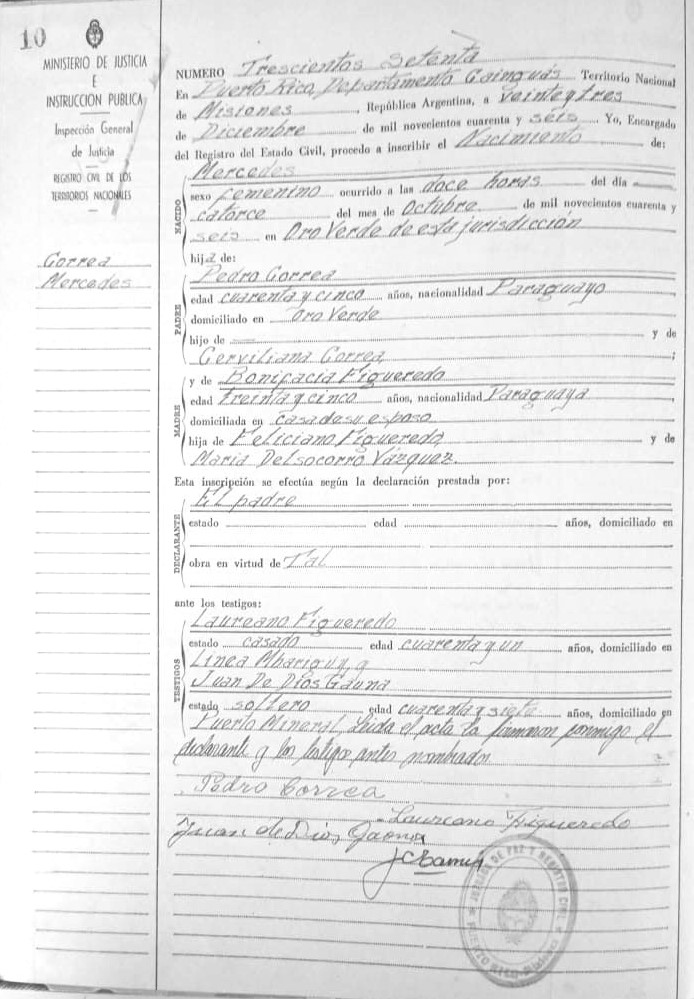 10
MINISTERIO DE JUSTICIA
E
INSTRUCCION PUBLICA
Inspección General
de Justicia
REGISTRO CIVIL DE LOS
TERRITORIOS NACIONALES
Correa
Mercedes
NUMERO Trescientos Setenta
En Puerto Rico, Departamento Cainguás Territorio Nacional
de Misiones, República Argentina, a veinteytres
de Diciembre de mil novecientos cuarenta y seis. Yo, Encargado
del Registro del Estado Civil, procedo a inscribir el Nacimiento de:
Mercedes
sexo femenino ocurrido a las doce horas del día
catorce del mes de Octubre de mil novecientos cuarenta y
seis en Oro Verde de esta jurisdicción
NACIDO
hija de:
Pedro Correa
edad cuarenta y cinco años, nacionalidad Paraguayo
domiciliado en Oro Verde
hijo de y de
Cerviliana Correa ;
PADRE
y de Bonifacia Figueredo
edad treinta y cinco años, nacionalidad Paraguaya
domiciliada en casa de su esposo
hija de Feliciano Figueredo y de
Maria Del socorro Vázquez.
MADRE
Esta inscripción se efectúa según la declaración prestada por:
El padre
estado edad años, domiciliado en
obra en virtud de Tal
DECLARANTE
ante los testigos:
Laureano Figueredo
estado casado edad cuarenta y un años, domiciliado en
Linea y
Juan De Dios Gauna
estado soltero edad cuarenta y siete años, domiciliado en
Puerto Mineral. Leida el acta la firmaron conmigo el
declarante y los testigos antes nombrados
TESTIGOS
Pedro Correa
Laureano Figueredo
Juan de Dios Gaona
JUZGADO DE PAZ Y REGISTRO CIVIL
PUERTO RICO